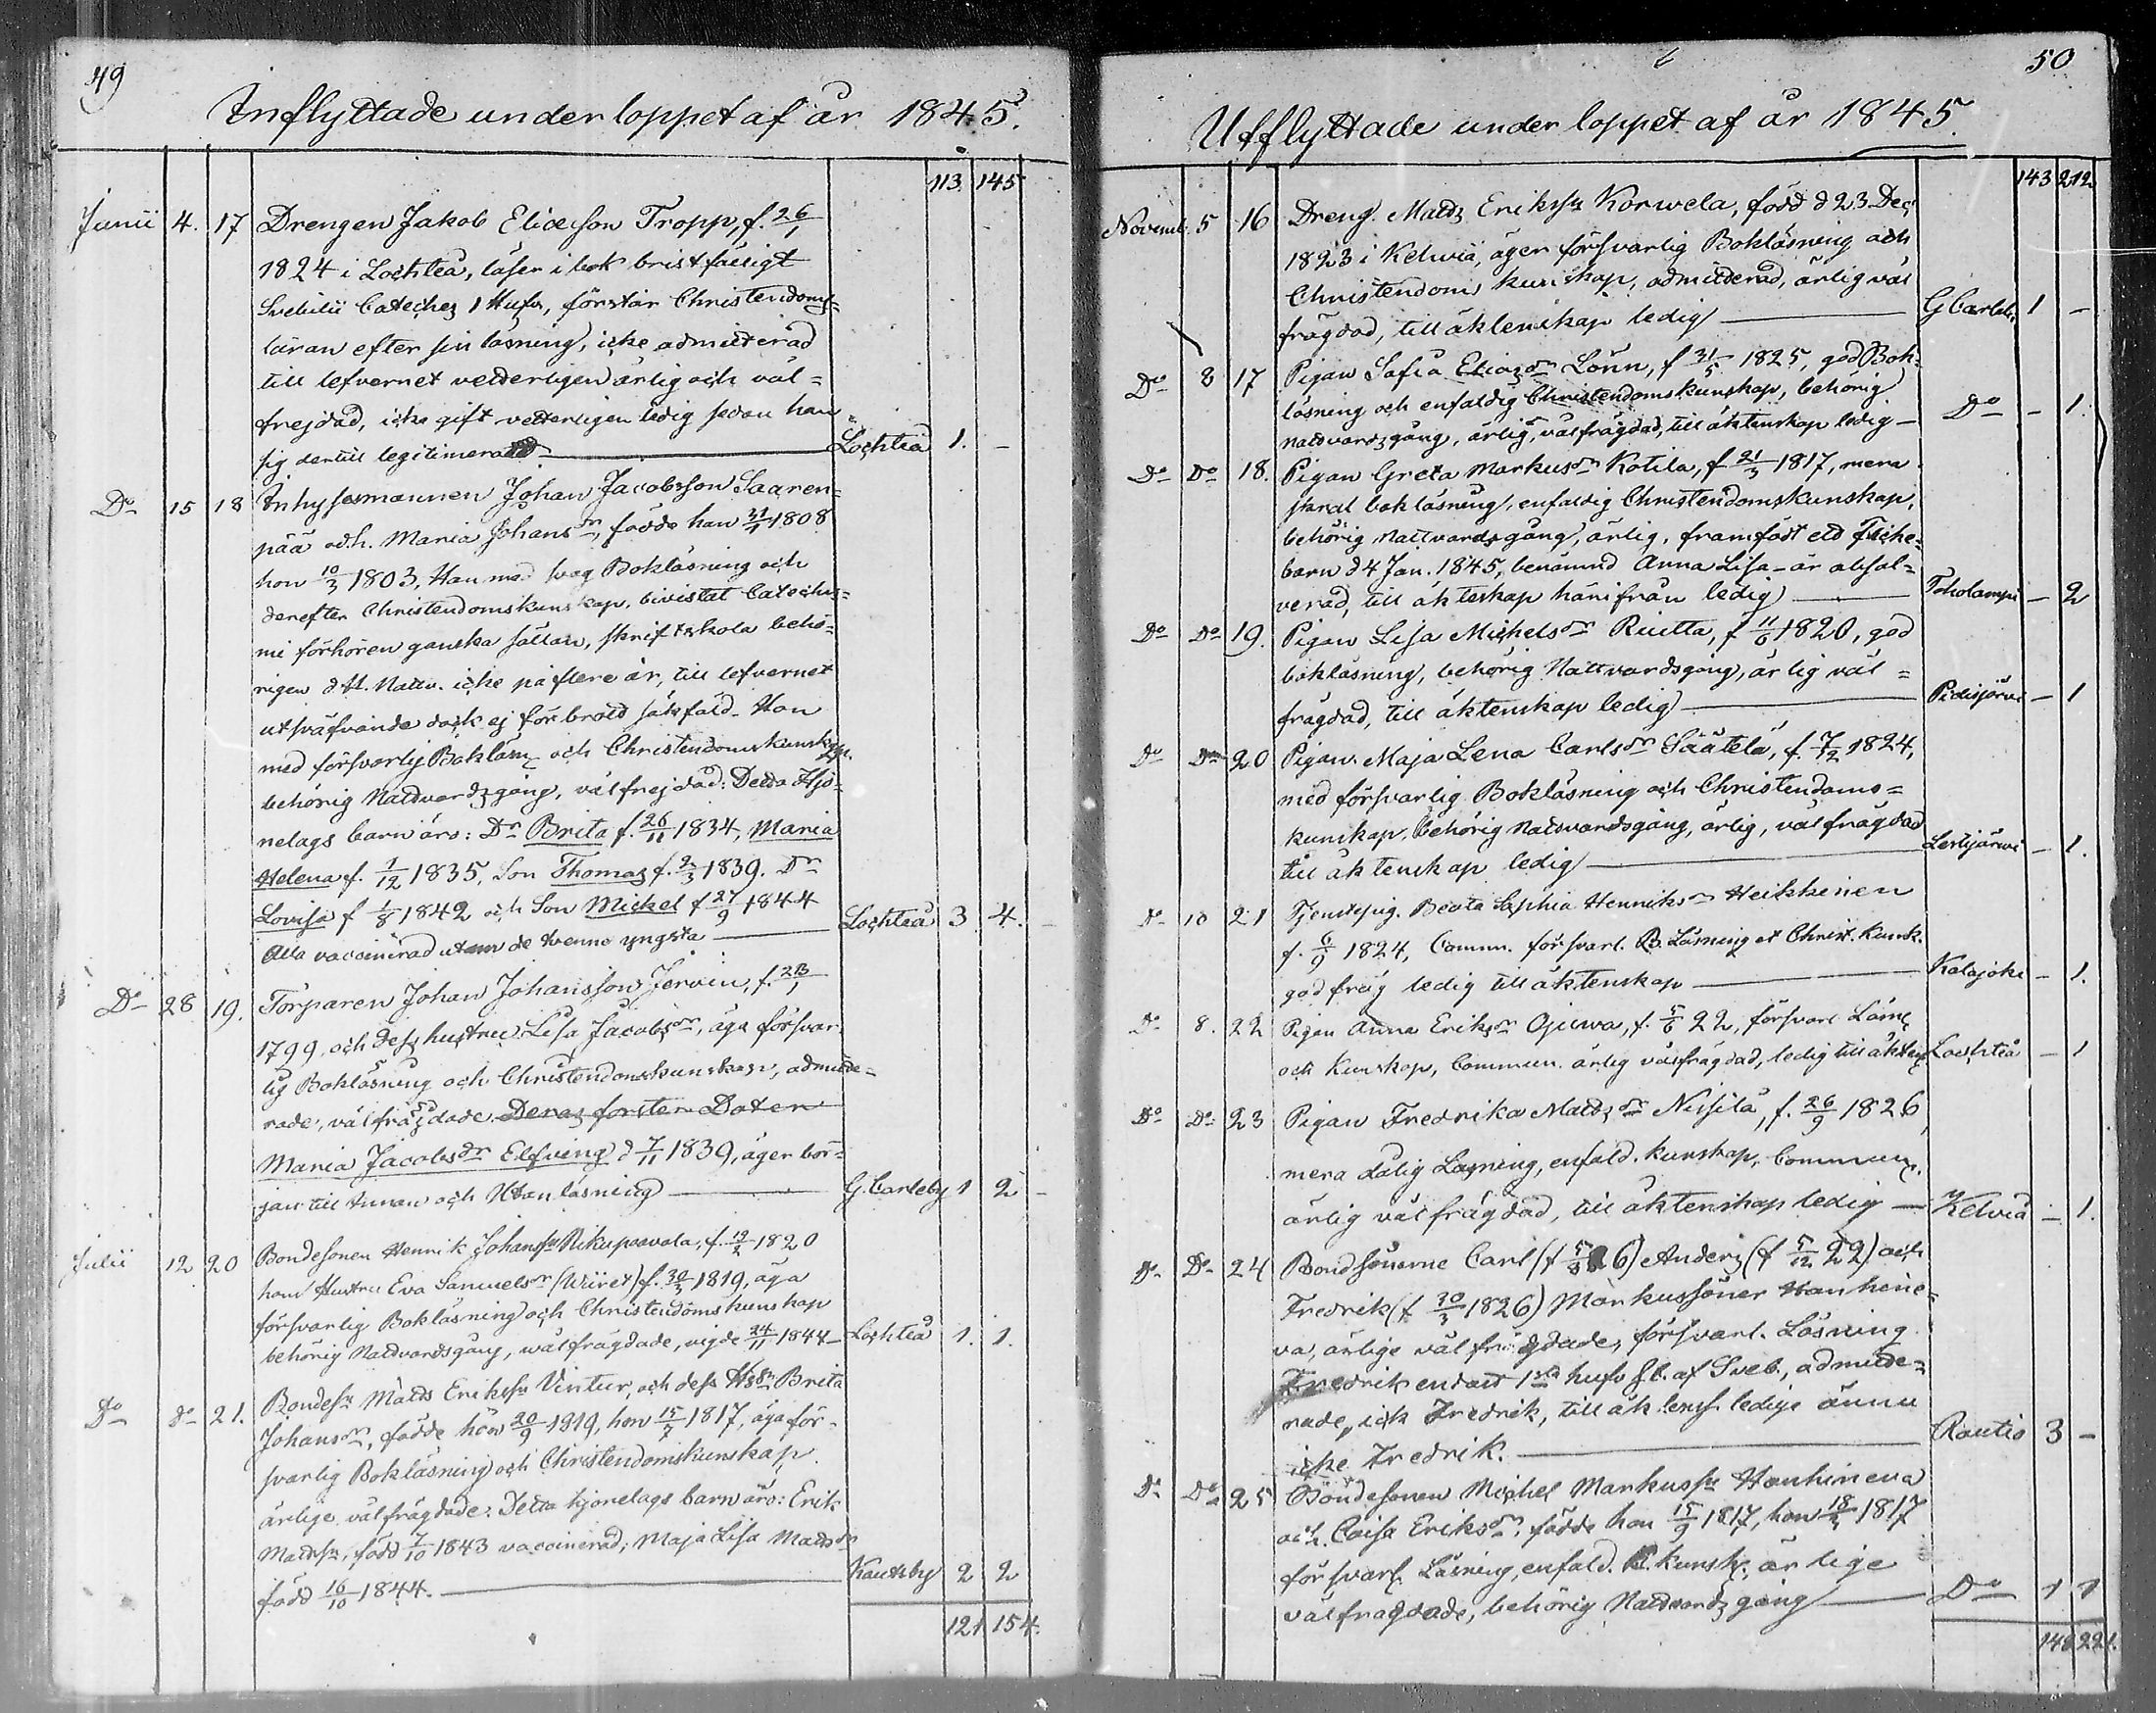 49
Inflyttade under loppet af år 1845.
113 145
Junii 4. 17 Drengen Jakob Eliasson Tropp, f. 26/1
1824 i Lochteå, läser i bok bristfälligt
Svebilii Cateches 1 Hufv, förstår Christendoms=
läran efter sin läsning, icke admitterad
till lefvernet vetterligen ärlig och väl=
frejdad, icke gift vetterligen ledig sedan han
sig dertill legitimerat Lochteå 1. -
Do 15 18 Inhysesmannen Johan Jacobsson Saaren=
pää och h. Maria Johansdr, födde han 31/1 1808
hon 10/3 1803, Han med svag Bokläsning och
derefter Christendomskunskap, bivistat Catechis=
mi förhören ganska sällan, skriftskola behö=
rigen d H. Nattv. icke på flere år, till lefvernet
utsväfvande dock ej för brott sakfäld. Hon
med försvarlig Bokläsn och Christendomskunskap.
behörig Nattvardsgång, välfrejdad: Detta Hjo=
nelags barn äro: Dr Brita f. 26/11 1834, Maria
Helena f. 1/12 1835, Son Thomas f. 2/3 1839. Dr
Lovisa f 1/8 1842 och Son Mickel f 27/9 1844
Alla vaccinerad utom de tvenne yngsta Lochteå 3 4.
Do 28 19. Torparen Johan Johansson Jervin, f. 23/1
1799 och dess hustru Lisa Jacobsdr, äga försvar=
lig Bokläsning och Christendomskunskap, admitte=
rade, välfrägdade. Deras foster Doter
Maria Jacobsdr Elfving d 7/11 1839, äger bör=
jan till Innan och Utanläsning G. Carleby 1 2
Julii 12 20 Bondesonen Henrik Johanss Rikupaavola, f. 19/2 1820
hans Hustru Eva Samuelsdr (Wiiret) f. 30/3 1819, äga
försvarlig Bokläsning och Christendomskunskap
behörig Nattvardsgång, wälfrägdade, vigde 24/11 1844 Lochteå 1. 1.
Do do 21. Bondesn Matts Erikssn Vintur, och dess Hstr Brita
Johansdr, födde han 20/9 1819, hon 15/7 1817, äga för=
svarlig Bokläsning och Christendomskunskap.
ärlige välfrägdade: Detta hjonelags barn äro: Erik
Mattssn, född 7/10 1843 vaccinerad; Maja Lisa Mattsdr
född 16/10 1844. Kaustby 2 2
121. 154.
50
Utflyttade under loppet af år 1845.
143 212
Novemb. 5 16 Dreng. Matts Erikssn Korwela, född d 23 Dec
1823 i Kelwiä, äger försvarlig Bokläsning och
Christendoms kunskap, admitterad, ärlig väl
frägdad, till äktenskap ledig G Carleb. 1 -
Do 8 17 Pigan Safia Eliasdr Lönn, f 31/5 1825, god Bok=
läsning och enfaldig Christendomskunskap, behörig
nattvardsgång, ärlig, välfrägdad, till äktenskap ledig Do - 1.
Do Do 18. Pigan Greta Markusdr Kotila, f 21/3 1817, mera
skral bokläsning, enfaldig Christendomskunskap,
behörig Nattvardsgång, ärlig, framfödt ett Äcke=
barn d 4 Jan. 1845, benämnd Anna Lisa - är absol=
verad, till äkteskap härifrån ledig Toholampi - 2
Do Do 19. Pigan Lisa Michelsdr Ruitta, f 11/6 1820, god
bokläsning, behörig Nattvardsgång, ärlig väl=
frägdad, till äktenskap ledig Pidisjärvi - 1
Do Do 20 Pigan Maja Lena Carlsdr Säätelä, f. 7/12 1824,
med försvarlig Bokläsning och Christendoms=
kunskap, behörig Nattvardsgång, ärlig, välfrägdad
till äktenskap ledig Lestijärwi - 1.
Do 10 21 Tjenstepig. Beata Sophia Henriksdr Heikkinen
f. 6/9 1824, Commun. försvarl. B. Läsning et Christ. Kunsk.
god fräg ledig till äktenskap Kalajoki - 1.
Do 8. 22 Pigan Anna Eriksdr Ojuwa, f. 5/6 22, försvarl Läsn
och Kunskap, Commun. ärlig välfrägdad, ledig till äktens Lochteå - 1
Do Do 23 Pigan Fredrika Mattsdr Nissilä, f. 26/9 1826,
mera dålig Läsning, enfald. kunskap, Commun.
ärlig välfrägdad, till äktenskap ledig Kelviä - 1.
Do Do 24 Bondsönerne Carl (f 5/8 16) Anders (f 5/12 22) och
Fredrik (f 30/3 1826) Markussöner Hanhine=
va, ärlige välfrägdade, försvarl. Läsning
Fredrik endast 1sta hufv st. af Sveb., admitte=
rade, ick Fredrik, till äktensk. ledige ännu
icke Fredrik. Rautio 3 -
Do Do 25 Bondesonen Michel Markussn Hanhineva
och h. Caisa Eriksdr, födde han 15/9 1817, hon 18/3 1817
försvarl. Läsning, enfald. B. kunsk., ärlige
välfragdade, behörig Nattvardsgång Do 1 1
148 221.